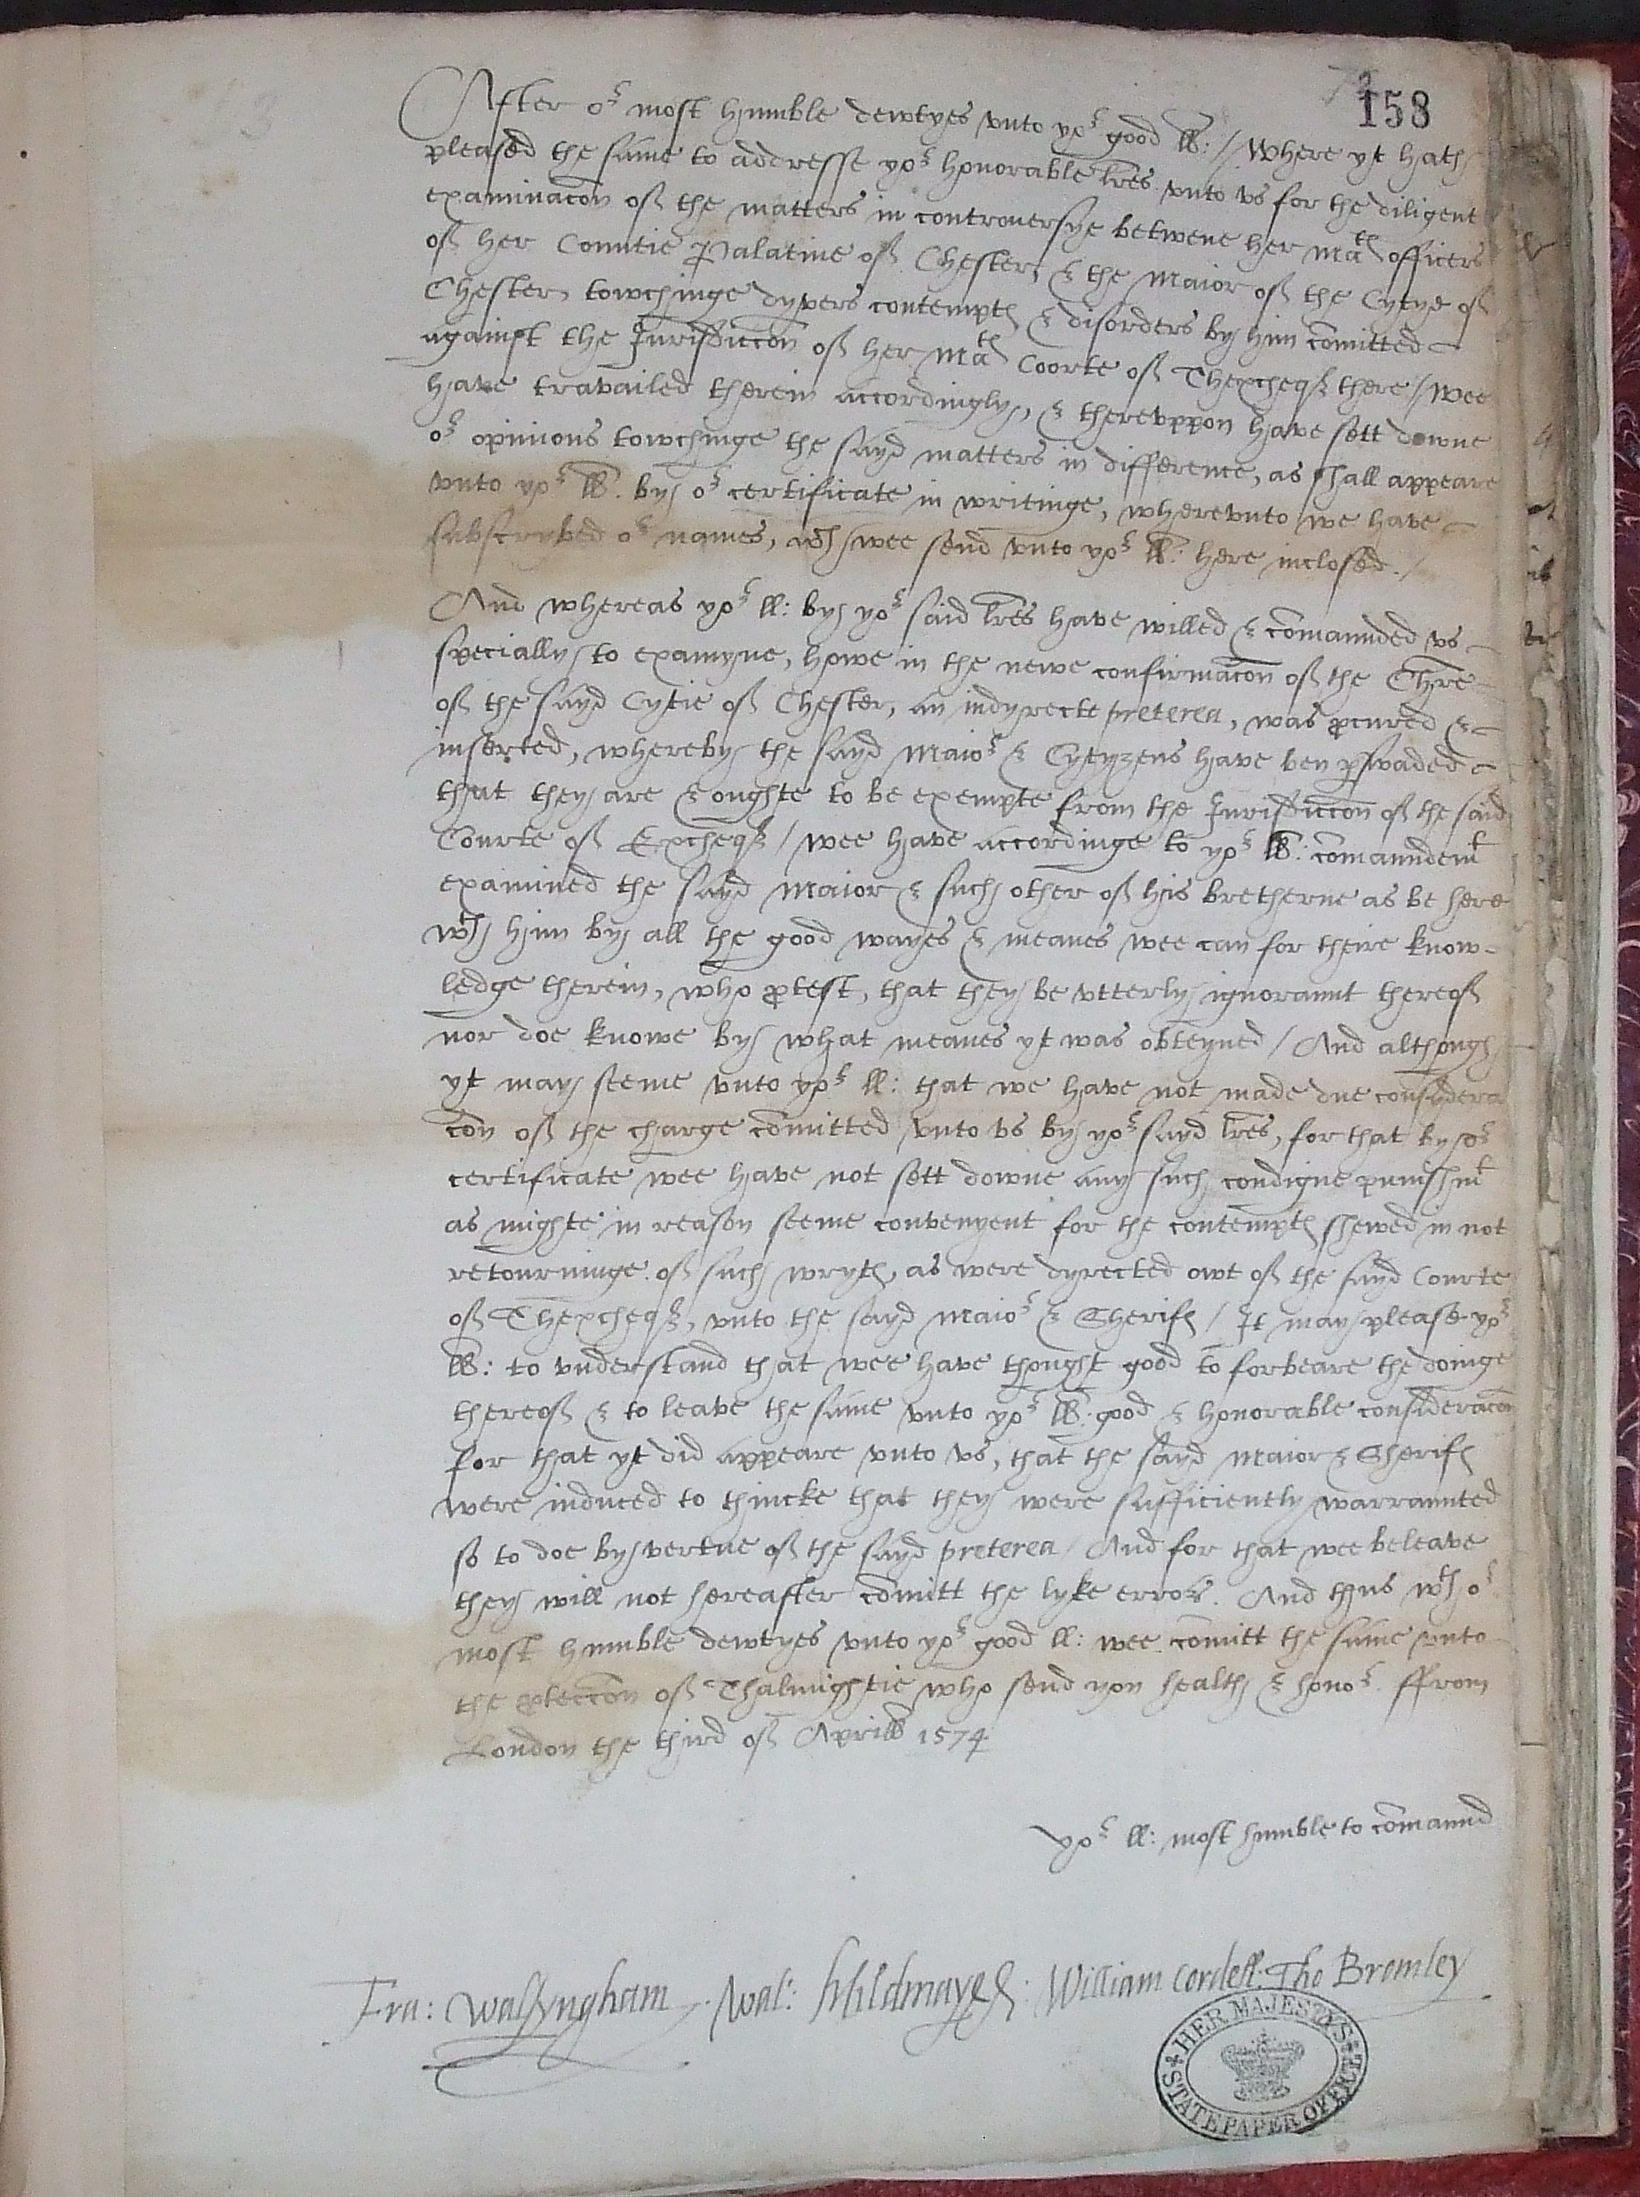 158
After or most humble dewtyes vnto yor good ll: // Where yt hath
pleased the same to addresse yor honorable lres vnto vs for the diligent
examinacon of the matters in controversye betwene her Matꝭ officers
of her Countie Palatine of Chester, & the Maior of the Cytye of
Chester, towchinge dyvers contemptꝭ & disorders by him comitted
against the Jurisdiccon of her Matꝭ Coorte of Thexchequer there / Wee
have travailed therein accordingly, & therevppon have sett downe
or opinions towchinge the sayd matters in difference, as shall appeare
vnto yor ll. by or certificate in writinge, wherevnto we have
subscrybed or names, wch wee send vnto yor ll: here inclosed. /
And whereas yor ll: by yor said lres have willed & comaunded vs
specially to examyne, howe in the newe confirmacon of the Chre
of the sayd Cytie of Chester, an indyrecte preterea, was pcured &
inserted, whereby the sayd Maior & Cytyzens have ben pswaded
that they are & oughte to be exempte from the Jurisdiccon of the said
Courte of Exchequer / wee have accordinge to yor ll: comaundemt
examined the sayd Maior & such other of his bretherne as be here
wth him by all the good wayes & meanes wee can for theire know-
ledge therein, who ptest, that they be vtterly ignoraunt thereof
nor doe knowe by what meanes yt was obteyned / And although
yt may seeme vnto yor ll: that we have not made due consydera
con of the charge comitted vnto vs by yor sayd lres, for that by or
certificate wee have not sett downe any such condigne punishmt
as mighte in reason seeme convenyent for the contemptꝭ shewed in not
retourninge of such wrytꝭ, as were dyrected owt of the sayd Courte
of Thexchequer, vnto the sayd Maior & Sherifꝭ / It may please yor
ll: to vnderstand that wee have thought good to forbeare the doinge
thereof & to leave the same vnto yor ll: good & honorable consideracon
for that yt did appeare vnto vs, that the sayd Maior & Sherifꝭ
were induced to thincke that they were sufficiently warraunted
so to doe by vertue of the sayd preterea / And for that wee beleave
they will not hereafter comitt the lyke error. And thus wth or
most humble dewtyes vnto yor good ll: wee comitt the same vnto
the pteccon of Thalmightie who send you health & honor. ffrom
London the third of Aprill 1574
yor ll: most humble to comaund
Fra: Walsyngham. Wal: Mildmaye: William Cordell. Tho Bromley
HER MAJESTYS
STATE PAPER OFFICE